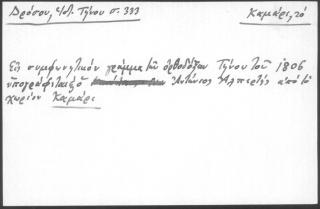 Δρόσου, Ἱστ. Τήνου σ. 333
Καμάρι, τό
Εἰς συμφωνητικόν γράμμα τῶν ὀρθοδόξων Τήνου τοῦ 1806
ὑπογράφεται ὁ Ἀντώνιος Ἀλπερτής ἀπό τό
χωρίον Καμάρι